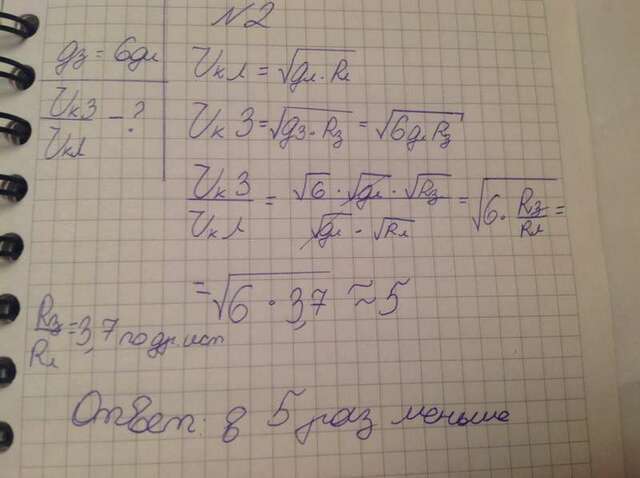 N2
gз = 6gл
Vкз/Vкл - ?
Vкл = √gл · Rл
Vк З = √gз · Rз = √6gл Rз
Vк З/Vк л = √6 · √gл · √Rз/√gл · √Rл = √6 · Rз/Rл =
= √6 · 3,7 ≈ 5
Rз/Rл = 3,7 по др. ист
Ответ: в 5 раз меньше